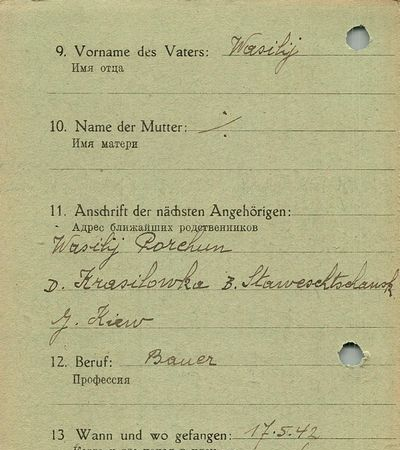 9. Vorname des Vaters: Wasilij
Имя отца
10. Name der Mutter: ·/·
Имя матери
11. Anschrift der nächsten Angehörigen:
Адрес ближайших родственников
Wasilij Porchun
D. Krasilowka B. Staweschtschansk
G. Kiew
12. Beruf: Bauer
Профессия
13 Wann und wo gefangen: 17.5.42